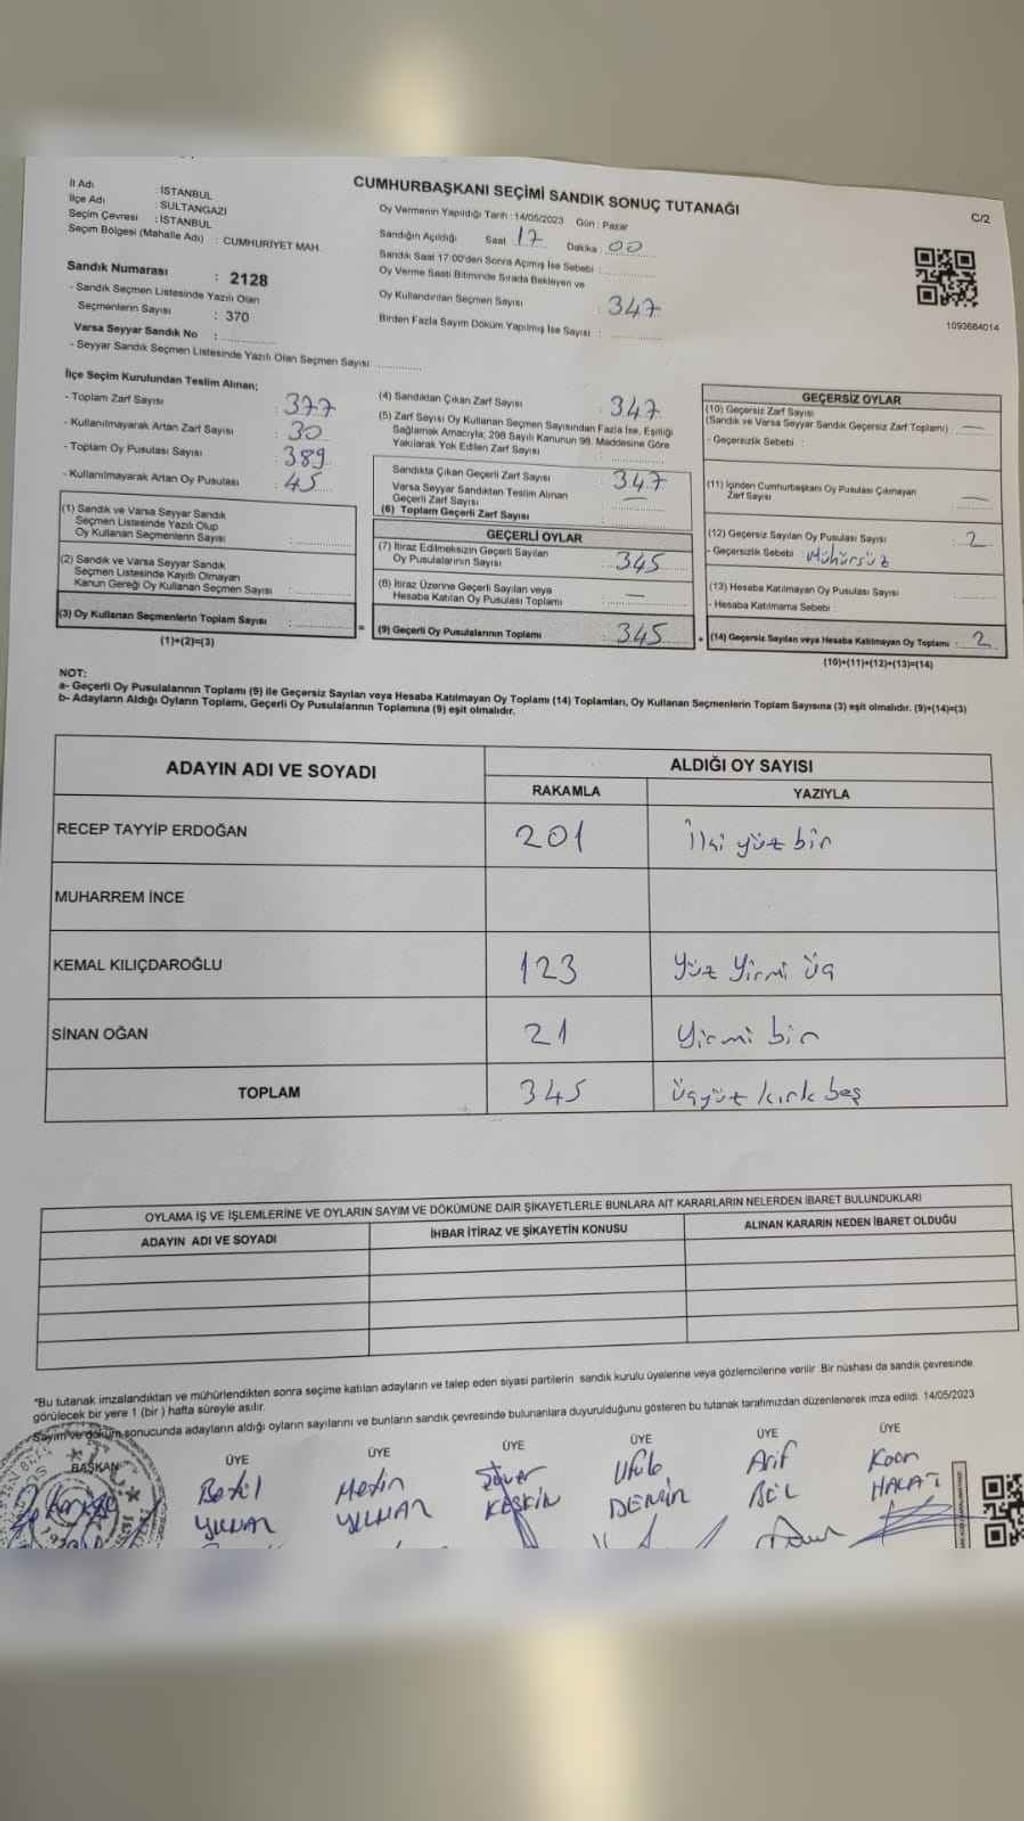 CUMHURBAŞKANI SEÇİMİ SANDIK SONUÇ TUTANAĞI
C/2
İl Adı : İSTANBUL
İlçe Adı : SULTANGAZİ
Seçim Çevresi : İSTANBUL
Seçim Bölgesi (Mahalle Adı) : CUMHURİYET MAH.
Oy Vermenin Yapıldığı Tarih : 14/05/2023 Gün : Pazar
Sandığın Açıldığı Saat 17 Dakika : 00
Sandık Saat 17:00'den Sonra Açımış İse Sebebi :
Oy Verme Saati Bitiminde Sırada Bekleyen ve
Oy Kullandırılan Seçmen Sayısı : 347
Birden Fazla Sayım Döküm Yapılmış İse Sayısı :
1093664014
Sandık Numarası : 2128
- Sandık Seçmen Listesinde Yazılı Olan
Seçmenlerin Sayısı : 370
Varsa Seyyar Sandık No :
- Seyyar Sandık Seçmen Listesinde Yazılı Olan Seçmen Sayısı
İlçe Seçim Kurulundan Teslim Alınan;
- Toplam Zarf Sayısı : 377
- Kullanılmayarak Artan Zarf Sayısı : 30
- Toplam Oy Pusulası Sayısı : 389
- Kullanılmayarak Artan Oy Pusulası : 45
(1) Sandık ve Varsa Seyyar Sandık
Seçmen Listesinde Yazılı Olup
Oy Kullanan Seçmenlerin Sayısı :
(2) Sandık ve Varsa Seyyar Sandık
Seçmen Listesinde Kayıtlı Olmayan
Kanun Gereği Oy Kullanan Seçmen Sayısı :
(3) Oy Kullanan Seçmenlerin Toplam Sayısı :
(1)+(2)=(3)
(4) Sandıktan Çıkan Zarf Sayısı : 347
(5) Zarf Sayısı Oy Kullanan Seçmen Sayısından Fazla İse, Eşitliği
Sağlamak Amacıyla; 298 Sayılı Kanunun 98. Maddesine Göre
Yakılarak Yok Edilen Zarf Sayısı :
Sandıkta Çıkan Geçerli Zarf Sayısı : 347
Varsa Seyyar Sandıktan Teslim Alınan
Geçerli Zarf Sayısı : —
(6) Toplam Geçerli Zarf Sayısı :
GEÇERLİ OYLAR
(7) İtiraz Edilmeksizin Geçerli Sayılan
Oy Pusulalarının Sayısı : 345
(8) İtiraz Üzerine Geçerli Sayılan veya
Hesaba Katılan Oy Pusulası Toplamı : —
= (9) Geçerli Oy Pusulalarının Toplamı : 345
GEÇERSİZ OYLAR
(10) Geçersiz Zarf Sayısı
(Sandık ve Varsa Seyyar Sandık Geçersiz Zarf Toplamı) : —
- Geçersizlik Sebebi :
(11) İçinden Cumhurbaşkanı Oy Pusulası Çıkmayan
Zarf Sayısı : —
(12) Geçersiz Sayılan Oy Pusulası Sayısı : 2
- Geçersizlik Sebebi : Mühürsüz
(13) Hesaba Katılmayan Oy Pusulası Sayısı :
- Hesaba Katılmama Sebebi :
+ (14) Geçersiz Sayılan veya Hesaba Katılmayan Oy Toplamı : 2
(10)+(11)+(12)+(13)=(14)
NOT:
a- Geçerli Oy Pusulalarının Toplamı (9) ile Geçersiz Sayılan veya Hesaba Katılmayan Oy Toplamı (14) Toplamları, Oy Kullanan Seçmenlerin Toplam Sayısına (3) eşit olmalıdır. (9)+(14)=(3)
b- Adayların Aldığı Oyların Toplamı, Geçerli Oy Pusulalarının Toplamına (9) eşit olmalıdır.
ADAYIN ADI VE SOYADI
ALDIĞI OY SAYISI
RAKAMLA YAZIYLA
RECEP TAYYİP ERDOĞAN 201 İki yüz bir
MUHARREM İNCE
KEMAL KILIÇDAROĞLU 123 Yüz Yirmi üç
SİNAN OĞAN 21 Yirmi bir
TOPLAM 345 üçyüz kırk beş
OYLAMA İŞ VE İŞLEMLERİNE VE OYLARIN SAYIM VE DÖKÜMÜNE DAİR ŞİKAYETLERLE BUNLARA AİT KARARLARIN NELERDEN İBARET BULUNDUKLARI
ADAYIN ADI VE SOYADI İHBAR İTİRAZ VE ŞİKAYETİN KONUSU ALINAN KARARIN NEDEN İBARET OLDUĞU
*Bu tutanak imzalandıktan ve mühürlendikten sonra seçime katılan adayların ve talep eden siyasi partilerin sandık kurulu üyelerine veya gözlemcilerine verilir. Bir nüshası da sandık çevresinde
görülecek bir yere 1 (bir) hafta süreyle asılır.
Sayım ve döküm sonucunda adayların aldığı oyların sayılarını ve bunların sandık çevresinde bulunanlara duyurulduğunu gösteren bu tutanak tarafımızdan düzenlenerek imza edildi. 14/05/2023
BAŞKAN ÜYE ÜYE ÜYE ÜYE ÜYE ÜYE
Metin KESKİN Ufuk DEMİR Arif